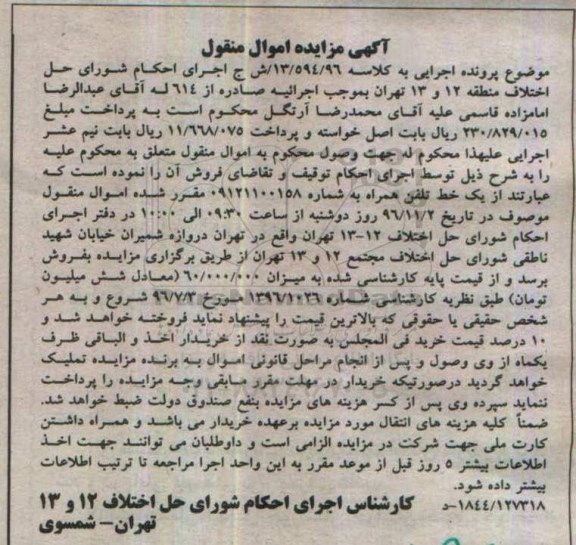 آگهی مزایده اموال منقول
موضوع پرونده اجرایی به کلاسه ۱۳/۵۹۴/۹۶/ش ج اجرای احکام شورای حل
اختلاف منطقه ۱۲ و ۱۳ تهران بموجب اجرائیه صادره از ۶۱۴ له آقای عبدالرضا
امامزاده قاسمی علیه آقای محمدرضا آرتگل محکوم است به پرداخت مبلغ
۲۳۰/۸۲۹/۰۱۵ ریال بابت اصل خواسته و پرداخت ۱۱/۶۶۸/۰۷۵ ریال بابت نیم عشر
اجرایی علیهذا محکوم له جهت وصول محکوم به اموال منقول متعلق به محکوم علیه
را به شرح ذیل توسط اجرای احکام توقیف و تقاضای فروش آن را نموده است که
عبارتند از یک خط تلفن همراه به شماره ۰۹۱۲۱۱۰۰۱۵۸ مقرر شده اموال منقول
موصوف در تاریخ ۹۶/۱۱/۲ روز دوشنبه از ساعت ۰۹:۳۰ الی ۱۰:۰۰ در دفتر اجرای
احکام شورای حل اختلاف ۱۲-۱۳ تهران واقع در تهران دروازه شمیران خیابان شهید
ناطقی شورای حل اختلاف مجتمع ۱۲ و ۱۳ تهران از طریق برگزاری مزایده بفروش
برسد و از قیمت پایه کارشناسی شده به میزان ۶۰/۰۰۰/۰۰۰ (معادل شش میلیون
تومان) طبق نظریه کارشناسی شماره ۱۳۹۶/۱۰۳۶ مورخ ۹۶/۷/۳ شروع و به هر
شخص حقیقی یا حقوقی که بالاترین قیمت را پیشنهاد نماید فروخته خواهد شد و
۱۰ درصد قیمت خرید فی المجلس به صورت نقد از خریدار اخذ و الباقی ظرف
یکماه از وی وصول و پس از انجام مراحل قانونی اموال به برنده مزایده تملیک
خواهد گردید درصورتیکه خریدار در مهلت مقرر مابقی وجه مزایده را پرداخت
ننماید سپرده وی پس از کسر هزینه های مزایده بنفع صندوق دولت ضبط خواهد شد.
ضمناً کلیه هزینه های انتقال مورد مزایده برعهده خریدار می باشد و همراه داشتن
کارت ملی جهت شرکت در مزایده الزامی است و داوطلبان می توانند جهت اخذ
اطلاعات بیشتر ۵ روز قبل از موعد مقرر به این واحد اجرا مراجعه تا ترتیب اطلاعات
بیشتر داده شود.
۱۸۴۴/۱۲۷۳۱۸-د کارشناس اجرای احکام شورای حل اختلاف ۱۲ و ۱۳
تهران- شمسوی